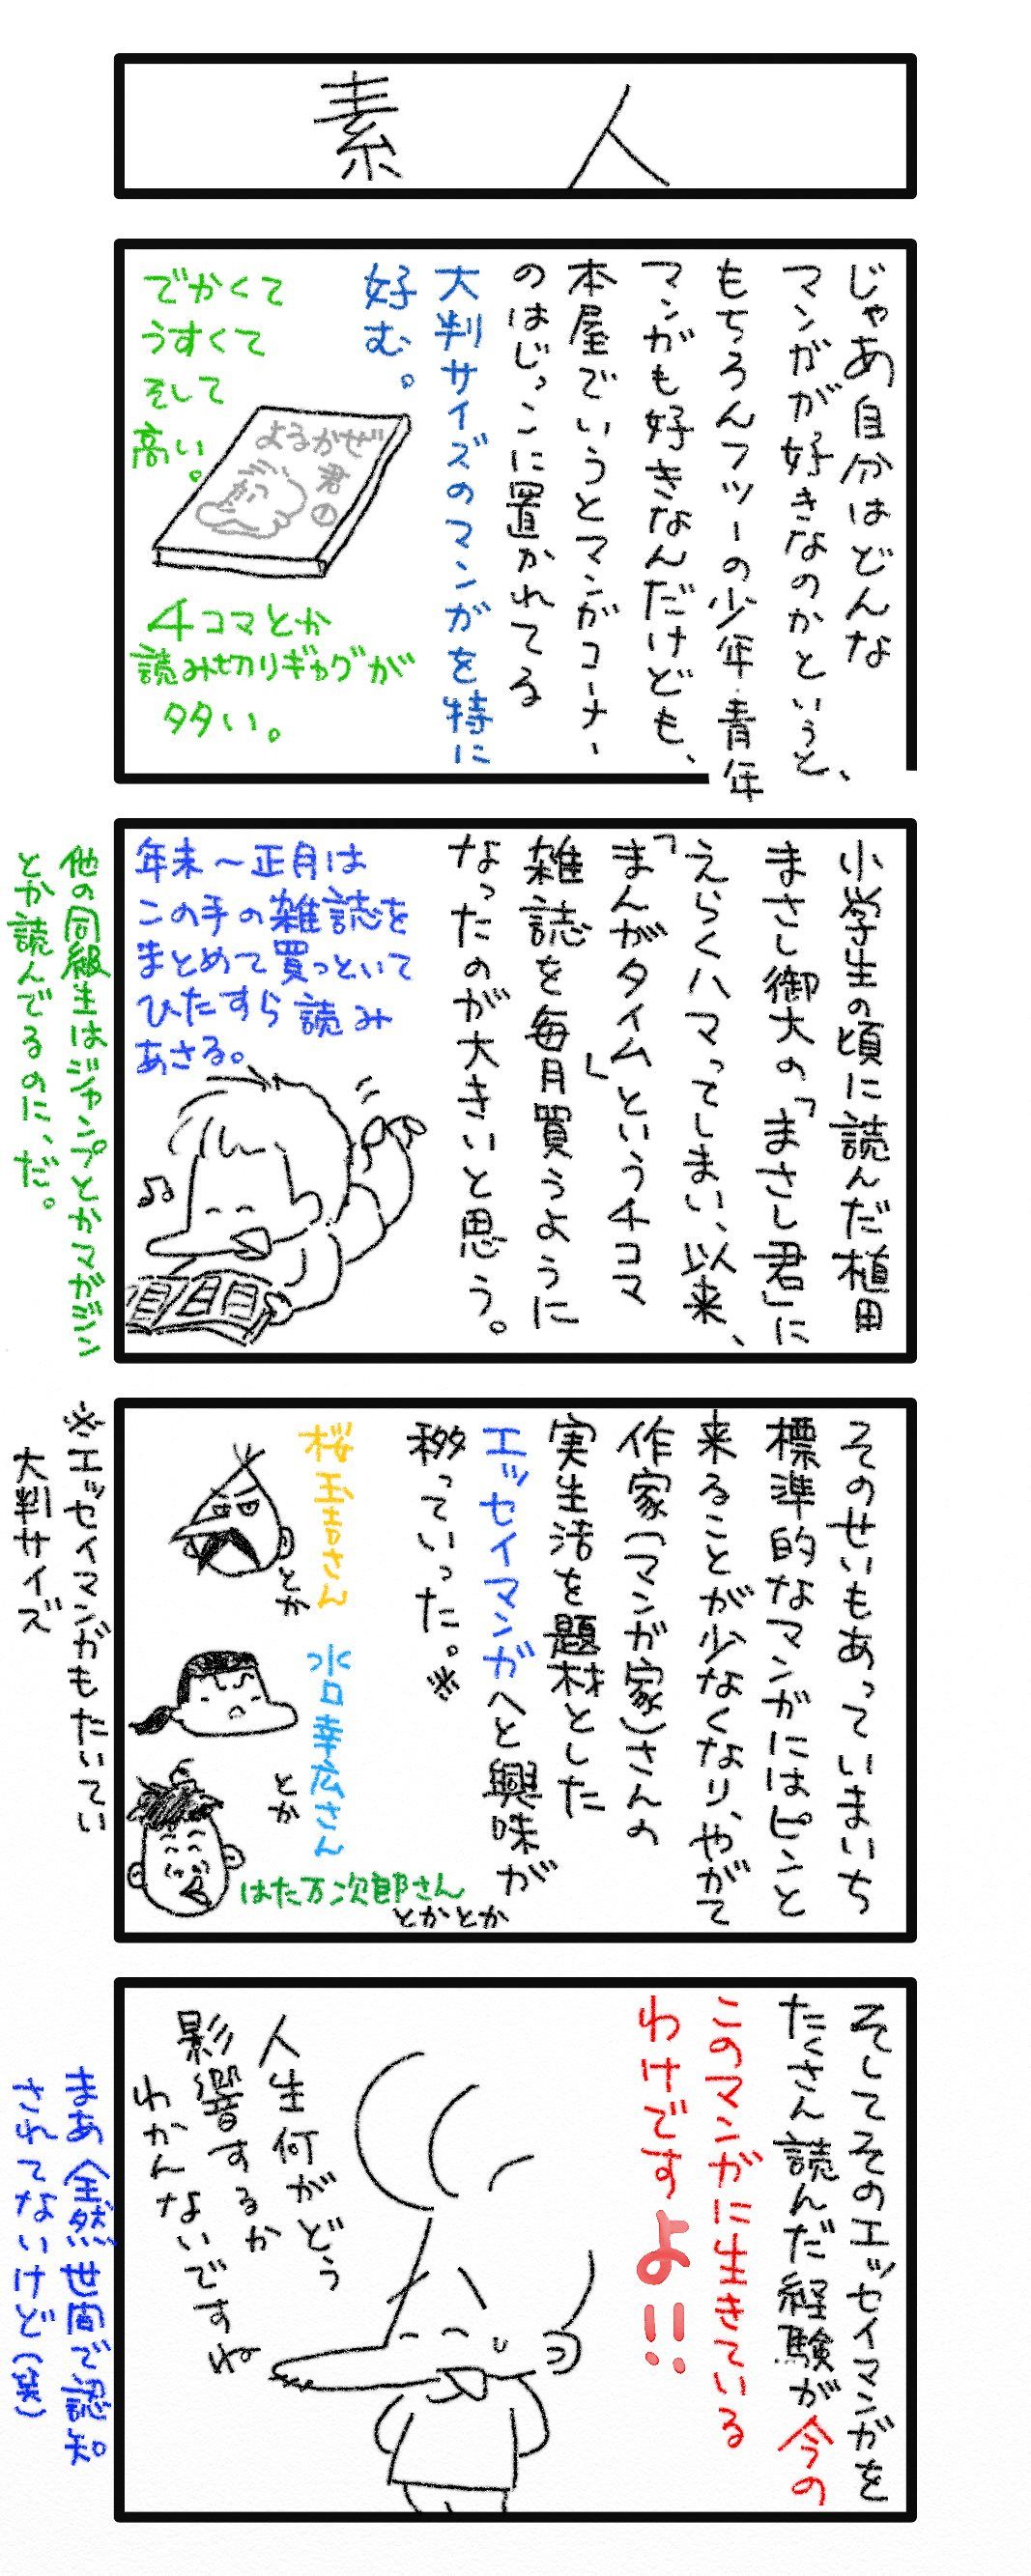 素人
じゃあ自分はどんな
マンガが好きなのかというと、
もちろんフツーの少年・青年
マンガも好きなんだけども、
本屋でいうとマンガコーナー
のはじっこに置かれてる
大判サイズのマンガを特に
好む。
でかくて
うすくて
そして
高い。
よるかぜ
君①
4コマとか
読み切りギャグが
多い。
小学生の頃に読んだ植田
まさし御大の「まさし君」に
えらくハマってしまい、以来、
「まんがタイム」という4コマ
雑誌を毎月買うように
なったのが大きいと思う。
年末〜正月は
この手の雑誌を
まとめて買っといて
ひたすら読み
あさる。
他の同級生はジャンプとかマガジン
とか読んでるのに、だ。
そのせいもあっていまいち
標準的なマンガにはピンと
来ることが少なくなり、やがて
作家(マンガ家)さんの
実生活を題材とした
エッセイマンガへと興味が
移っていった。※
桜玉吉さん
とか
水口幸広さん
とか
はた万次郎さん
とかとか
※エッセイマンガもたいてい
大判サイズ
そしてそのエッセイマンガを
たくさん読んだ経験が今の
このマンガに生きている
わけですよ!!
人生何がどう
影響するか
わかんないですね
まあ全然世間で認知
されてないけど(笑)